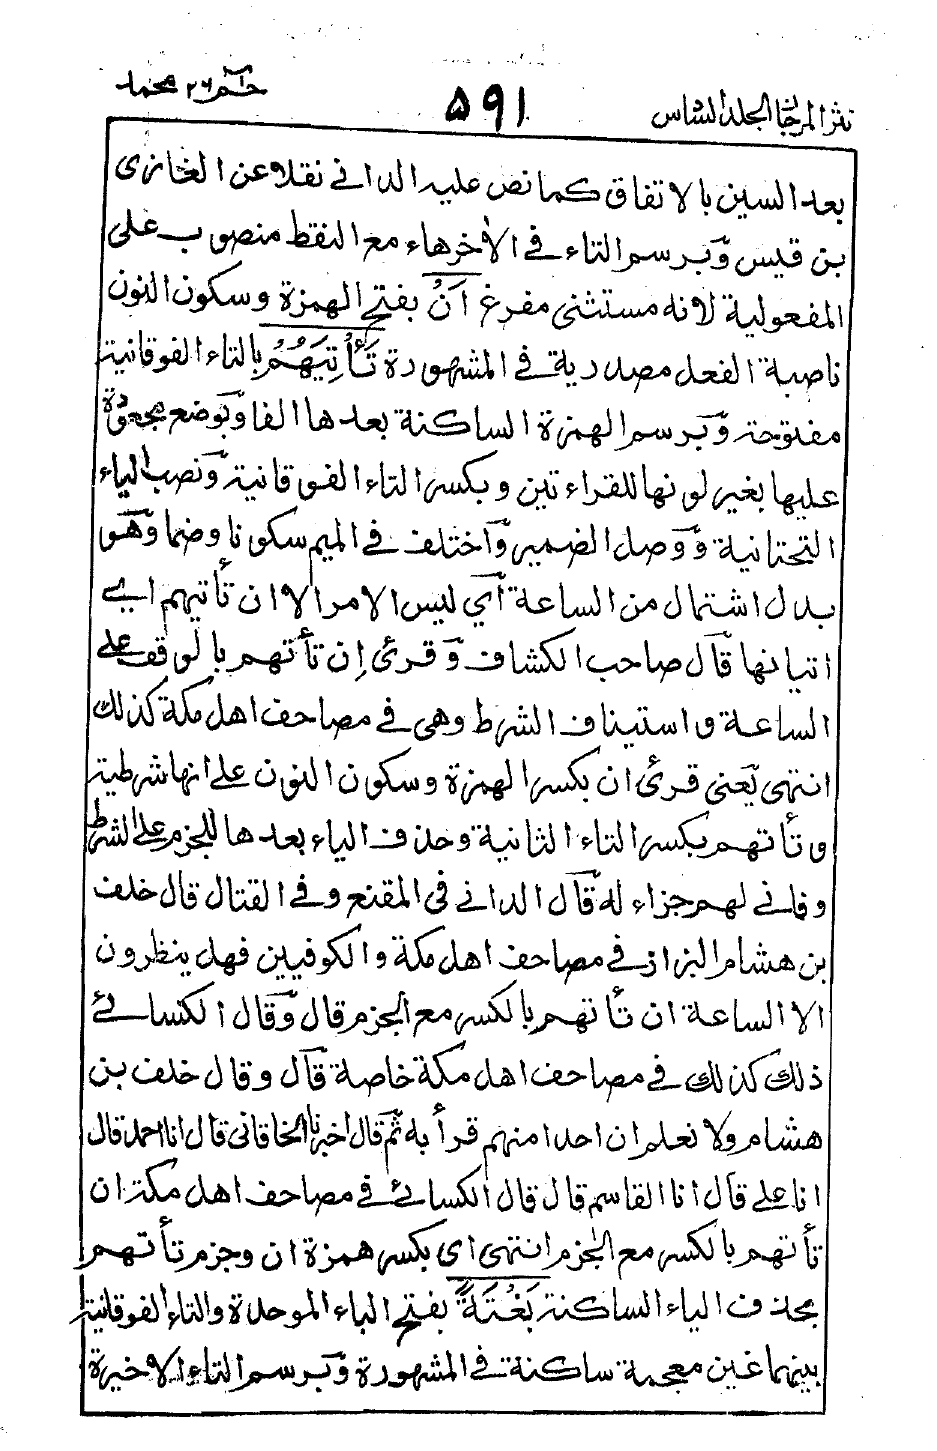 نثر المرجان الجلد السادس
۵۹۱
حٰم ۲۶ محمد
بعد السين بالاتفاق كما نص عليه الدانے نقلا عن الغازى
بن قيس وَبرسم التاء فے الأخر هاء مع النقط منصوب على
المفعولية لانه مستثنى مفرغ اَنْ بفتح الهمزة وسكون النون
ناصبة الفعل مصدرية فے المشهورة تَأْتِيَهُمْ بالتاء الفوقانية
مفتوحة وَبرسم الهمزة الساكنة بعدها الفا وَبوضع مجعودة
عليها بغير لونها للقراءتين وبكسر التاء الفوقانية وَنصب الياء
التحتانية وَوصل الضمير وَاختلف فے الميم سكونا وضما وَهو
بدل اشتمال من الساعة اَي ليس الامر الا ان تأتيهم ايے
اتيانها قَال صاحب الكشاف وَقرئ اِن تأتهم بالوقف على
الساعة واستيناف الشرط وهى فے مصاحف اهل مكة كذلك
انتهى يَعنى قرئ ان بكسر الهمزة وسكون النون على انها شرطية
وتأتهم بكسر التاء الثانية وحذف الياء بعدها للجزم على الشرط
وفانے لهم جزاء له قَال الدانے فى المقنع وفے القتال قال خلف
بن هشام البزاز فے مصاحف اهل مكة والكوفيين فهل ينظرون
الا الساعة ان تأتهم بالكسر مع الجزم قال وَقال الكسائے
ذلك كذلك فے مصاحف اهل مكة خاصة قَال وقال خلف بن
هشام ولا نعلم ان احدا منهم قرأ به ثَم قال اخبرنا الخاقانى قال انا احمد قال
انا على قَال انا القاسم قال قال الكسائے فے مصاحف اهل مكة ان
تأتهم بالكسر مع الجزم انتهى اى بكسر همزة ان وجزم تأتهم
بحذف الياء الساكنة بَغْتَةً بفتح الباء الموحدة والتاء الفوقانية
بينهما غين معجمة ساكنة فے المشهورة وَبرسم التاء الاخيرة